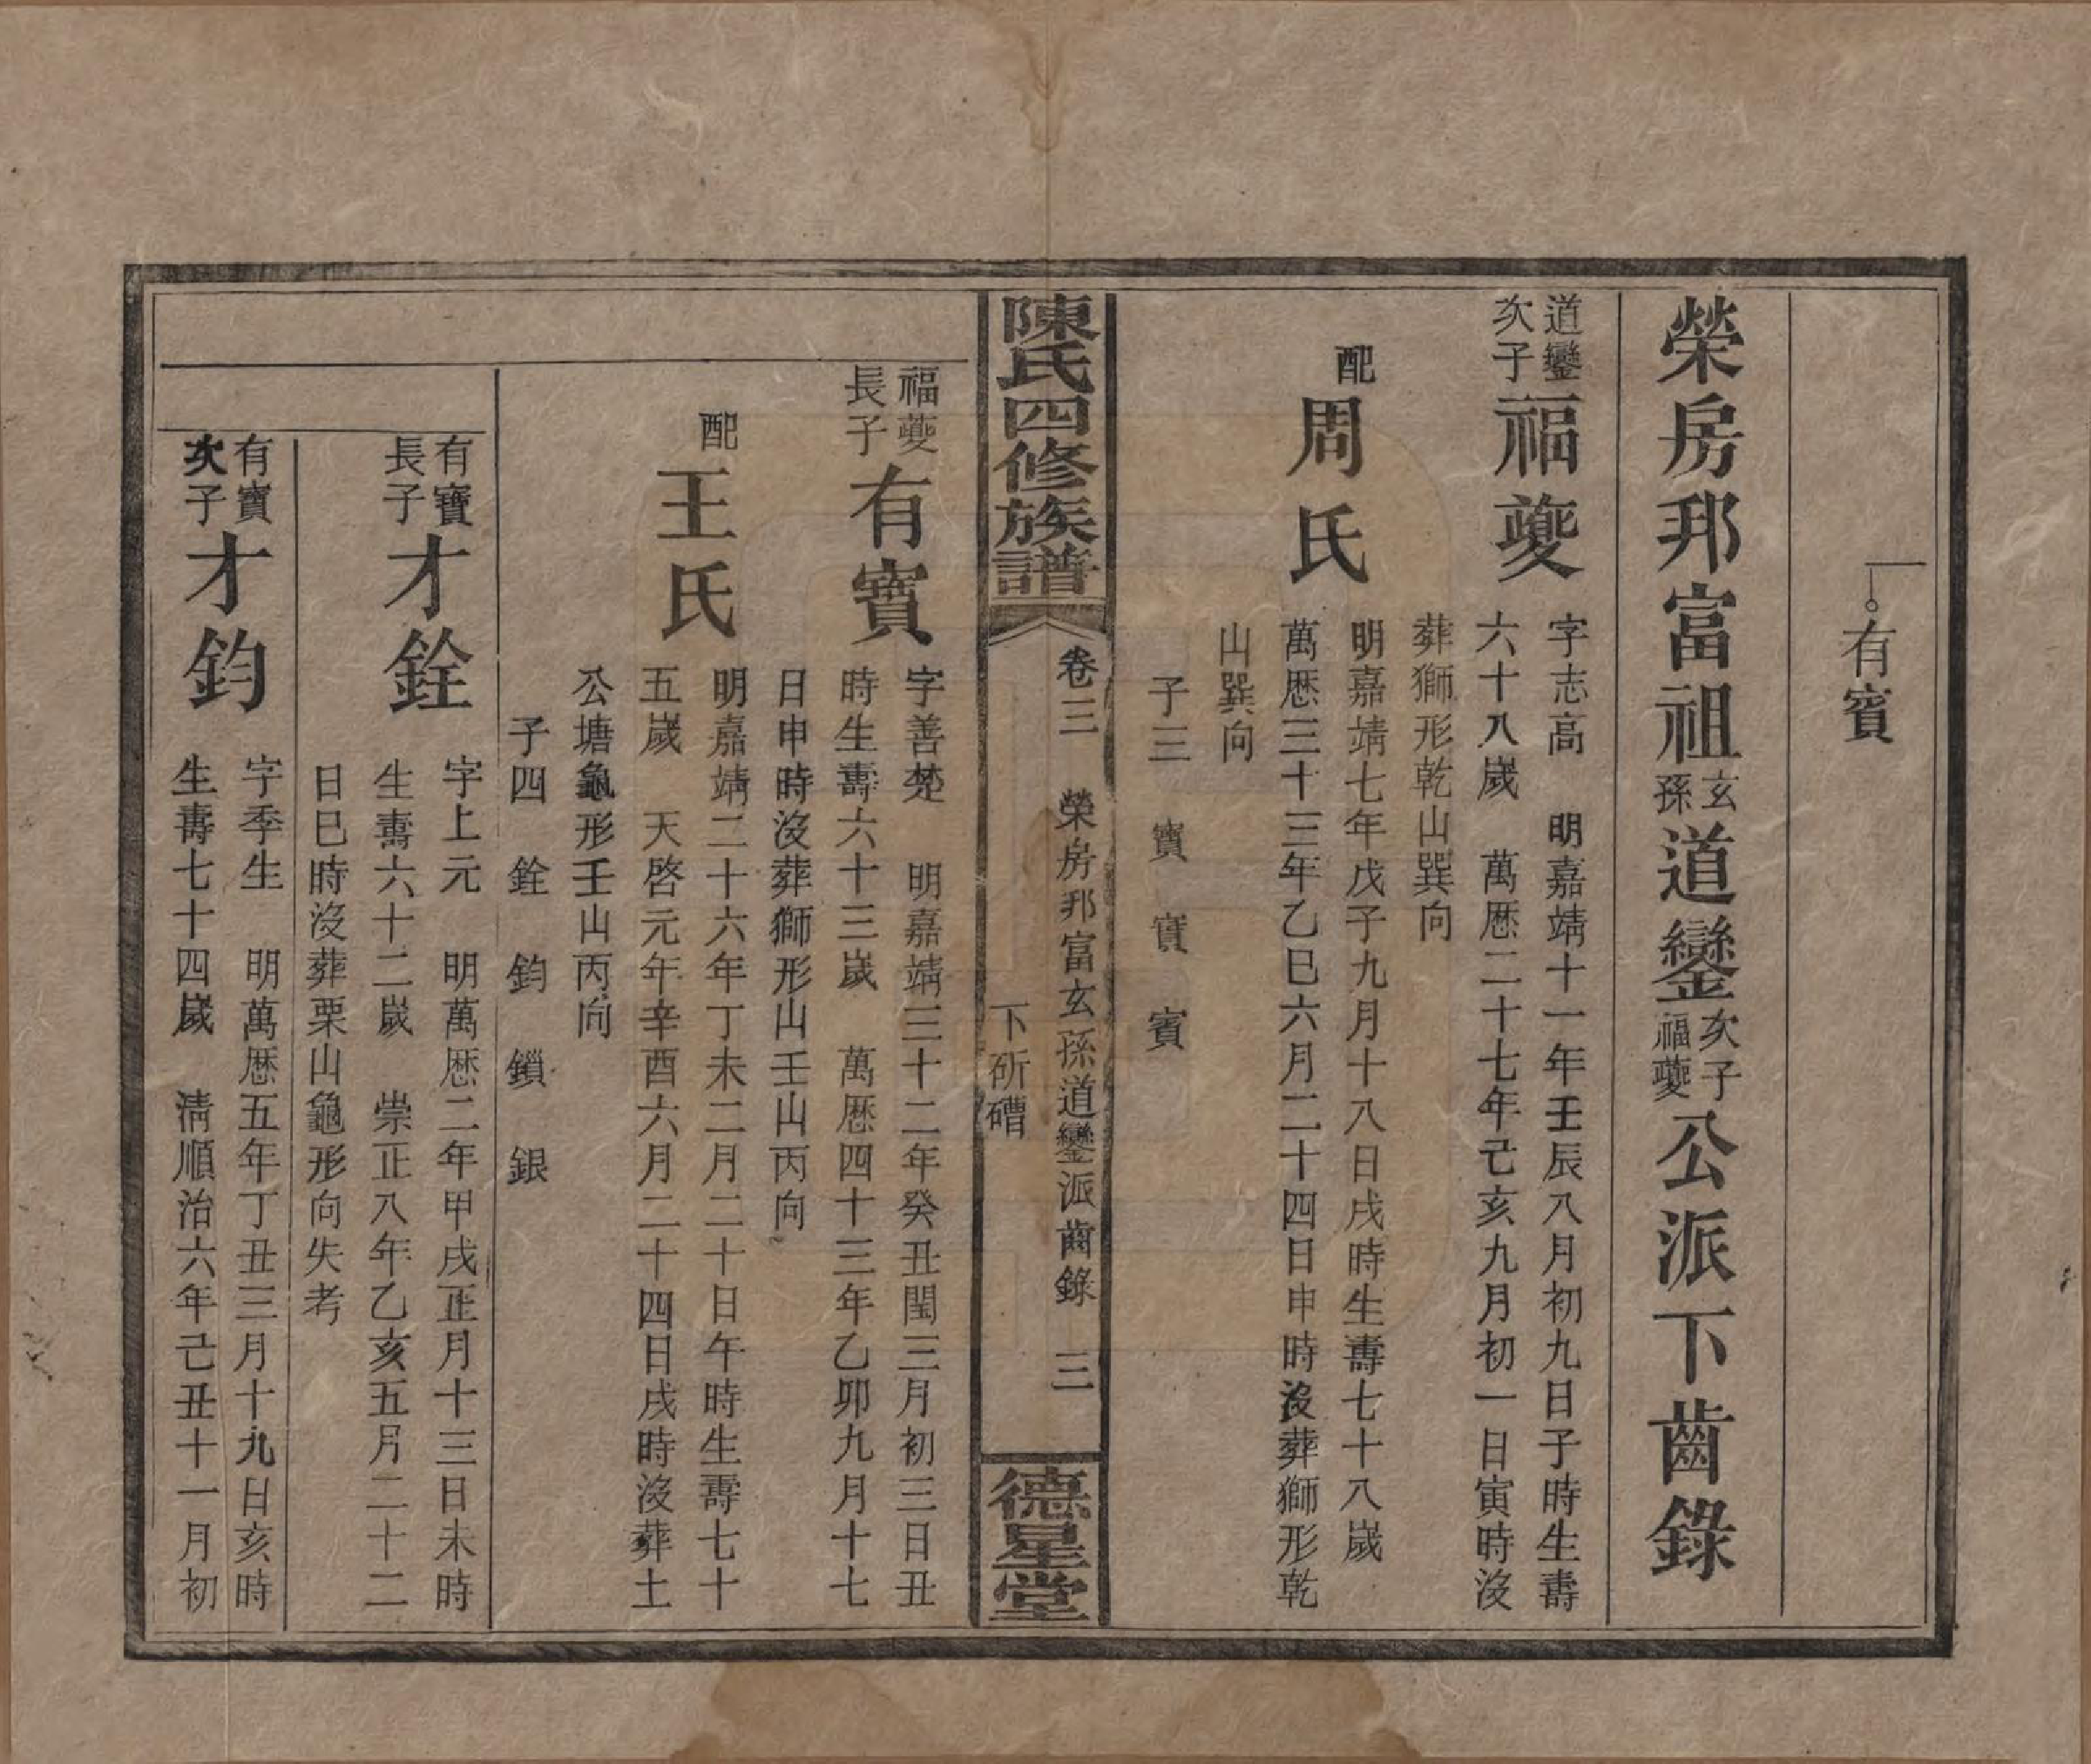 有賓
榮房邦富祖玄孫道鑾次子福夔公派下齒錄
道鑾次子福夔 字志高 明嘉靖十一年壬辰八月初九日子時生壽
六十八歲 萬厯二十七年己亥九月初一日寅時沒
葬獅形乾山巽向
配周氏 明嘉靖七年戊子九月十八日戌時生壽七十八歲
萬厯三十三年乙巳六月二十四日申時沒葬獅形乾
山巽向
子三 寶 實 賓
陳氏四修族譜 卷三 榮房邦富玄孫道鑾派齒錄 三 德星堂
下斫磳
福夔長子有寶 字善楚 明嘉靖三十二年癸丑閏三月初三日丑
時生壽六十三歲 萬厯四十三年乙卯九月十七
日申時沒葬獅形山壬山丙向
配王氏 明嘉靖二十六年丁未二月二十日午時生壽七十
五歲 天啓元年辛酉六月二十四日戌時沒葬土
公塘龜形壬山丙向
子四 銓 鈞 鎖 銀
有寶長子才銓 字上元 明萬厯二年甲戌正月十三日未時
生壽六十二歲 崇正八年乙亥五月二十二
日巳時沒葬栗山龜形向失考
有寶次子才鈞 字季生 明萬厯五年丁丑三月十九日亥時
生壽七十四歲 清順治六年己丑十一月初